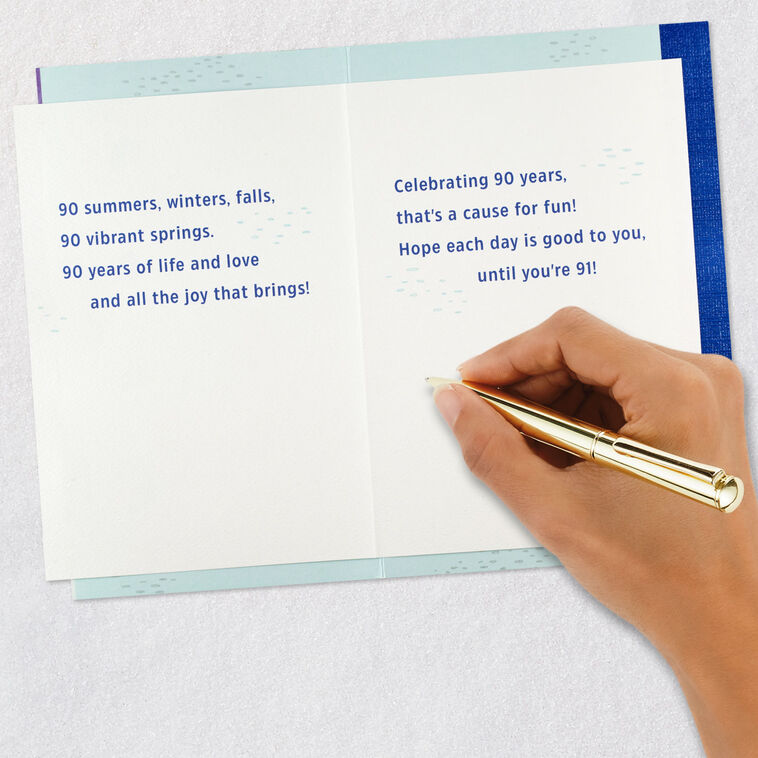 90 summers, winters, falls,
90 vibrant springs.
90 years of life and love
and all the joy that brings!
Celebrating 90 years,
that's a cause for fun!
Hope each day is good to you,
until you're 91!